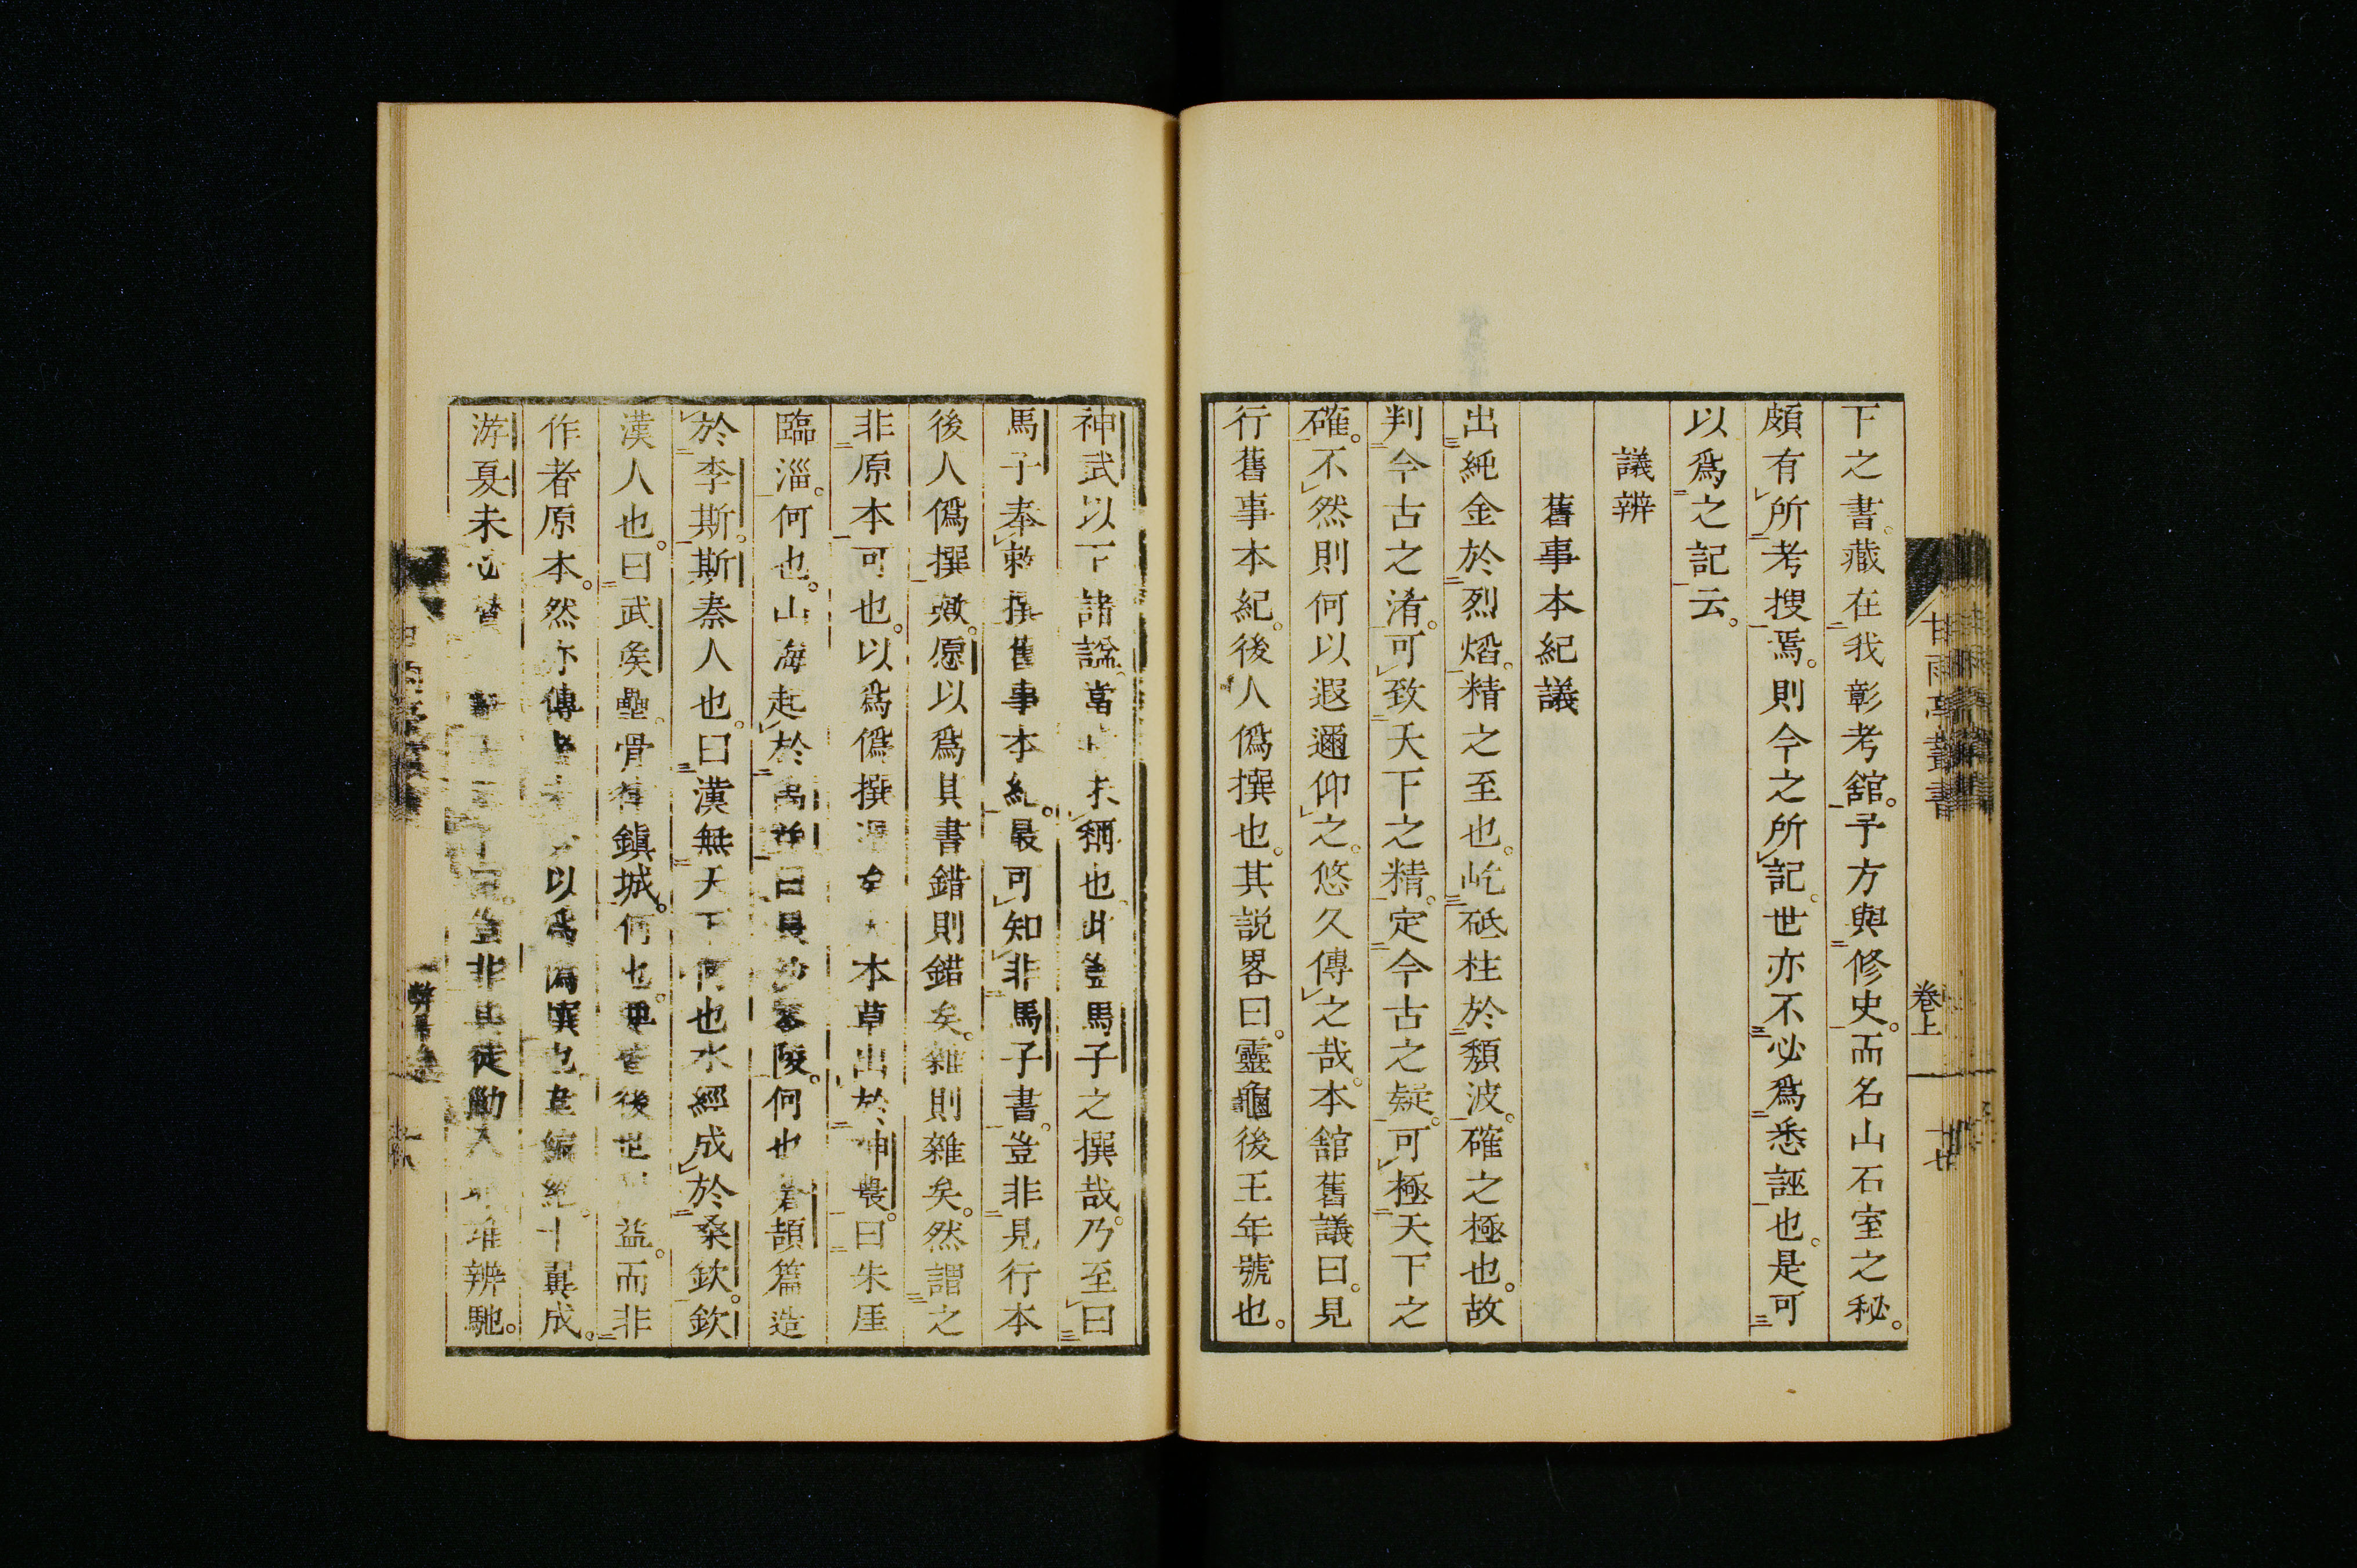 下之書藏在我彰考舘。予方與修史。而名山石室之秘。
頗有所考搜焉。則今之所記。世亦不必爲悉誣也。是可
以爲之記云。
議辨
舊事本紀議
出純金於烈熖。精之至也。屹砥柱於頽波。確之極也。故
判今古之淆。可致天下之精。定今古之疑。可極天下之
確。不然則何以遐邇仰之。悠久傳之哉。本舘舊議曰。見
行舊事本紀。後人僞撰也。其説畧曰。靈龜後王年號也。
神武以下諸諡。當時未稱也。此豈馬子之撰哉。乃至曰
馬子奉敕撰舊事本紀。最可知非馬子書。豈非見行本
後人僞撰歟。愿以爲其書錯則錯矣。雜則雜矣。然謂之
非原本可也。以爲僞撰本草出於神農。曰朱厓
臨淄。何也。山海起於禹益。曰長沙零陵。何也。蒼頡篇造
於李斯。斯秦人也。曰漢無天下何也。水經成於桑欽。欽
漢人也。曰武侯壘。骨律鎮城。何也。後世益。而非
作者原本。然亦傳以爲僞撰也。韋編絶。十翼成。
游夏未必豈非其徒勦入難辨馳。
甘雨亭叢書
卷上